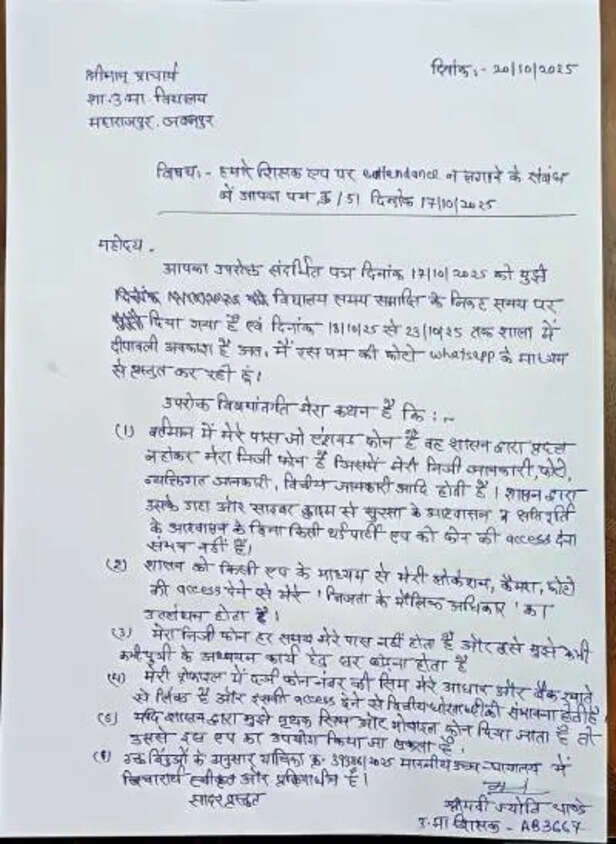 दिनांक:- 20/10/2025
श्रीमान् प्राचार्य
शा.उ.मा. विद्यालय
महाराजपुर, जबलपुर
विषय:- हमारे शिक्षक एप पर eattendance न लगाने के संबंध
में आपका पत्र क्र/51 दिनांक 17/10/2025
महोदय,
आपका उपरोक्त संदर्भित पत्र दिनांक 17/10/2025 को मुझे
विद्यालय समय समाप्ति के निकट समय पर
दिया गया है एवं दिनांक 18/10/25 से 23/10/25 तक शाला में
दीपावली अवकाश है अत: मैं इस पत्र की फोटो whatsapp के माध्यम
से प्रस्तुत कर रही हूं।
उपरोक्त विषयांतर्गत मेरा कथन है कि :-
(1) वर्तमान में मेरे पास जो एंड्रायड फोन है वह शासन द्वारा प्रदत्त
न होकर मेरा निजी फोन है जिसमें मेरी निजी जानकारी, फोटो,
व्यक्तिगत जानकारी, वित्तीय जानकारी आदि होती है। शासन द्वारा
उसके डाटा और सायबर क्राइम से सुरक्षा के आश्वासन व क्षतिपूर्ति
के आश्वासन के बिना किसी थर्डपार्टी एप को फोन की access देना
संभव नहीं है।
(2) शासन को किसी एप के माध्यम से मेरी लोकेशन, कैमरा, फोटो
की access देने से मेरे 'निजता के मौलिक अधिकार' का
उल्लंघन होता है।
(3) मेरा निजी फोन हर समय मेरे पास नहीं होता है और इसे मुझे कभी
के अध्ययन कार्य हेतु घर छोड़ना होता है
(4) मेरी प्रोफाइल में दर्ज फोन नंबर की सिम मेरे आधार और बैंक खाते
से लिंक है और इसकी access देने से वित्तीय धोखाधड़ी की संभावना होती है
(5) यदि शासन द्वारा मुझे पृथक सिम और मोबाइल फोन दिया जाता है तो
उससे इस एप का उपयोग किया जा सकता है।
उक्त बिंदुओं के अनुसार याचिका क्र. 39386/2025 माननीय उच्च न्यायालय में
विचारार्थ स्वीकृत और प्रक्रियाधीन है।
सादर प्रस्तुत
श्रीमती ज्योति पाण्डे
उ.मा शिक्षक - AB3667